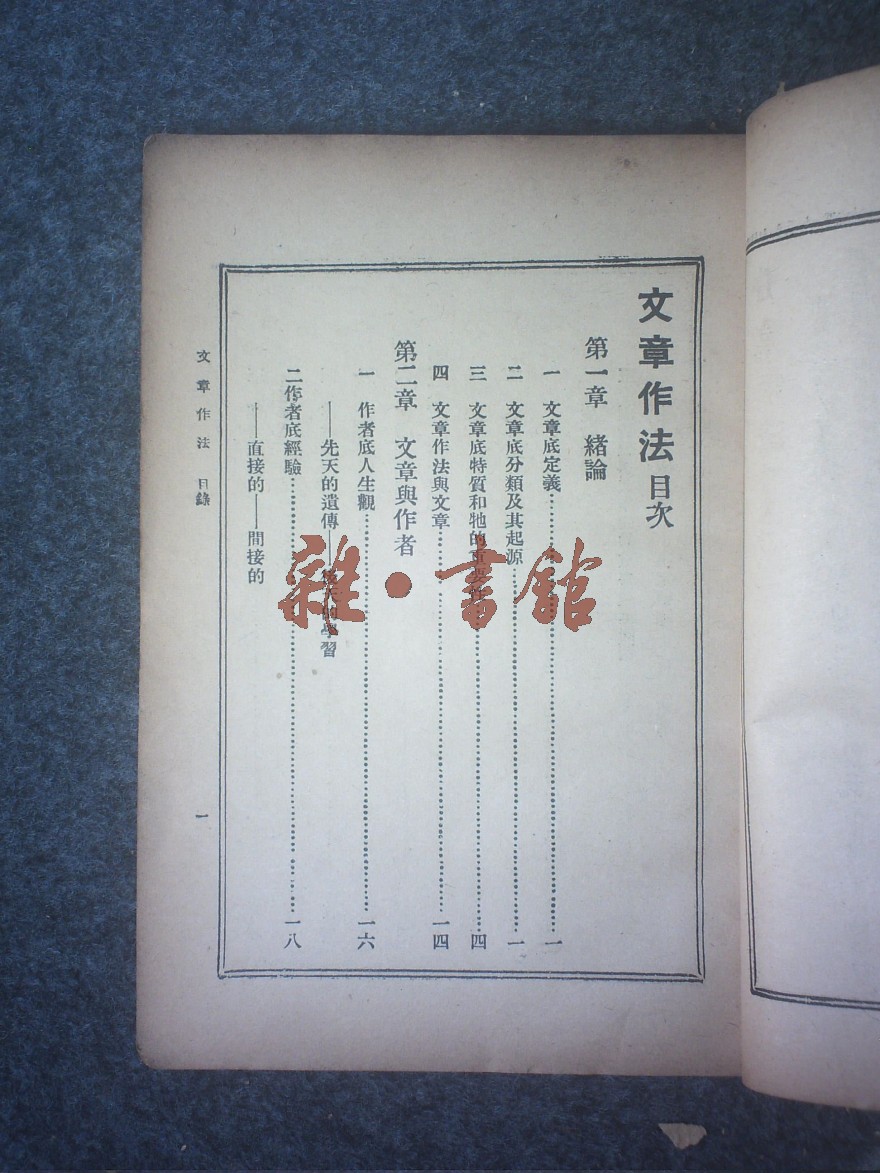 文章作法目次
第一章　緒論
一　文章底定義……一
二　文章底分類及其起源……一
三　文章底特質和牠的重要性……四
四　文章作法與文章……一四
第二章　文章與作者
一　作者底人生觀……一六
——先天的遺傳——後天的學習
二作者底經驗……一八
——直接的——間接的
文章作法　目錄
一
雜·書館